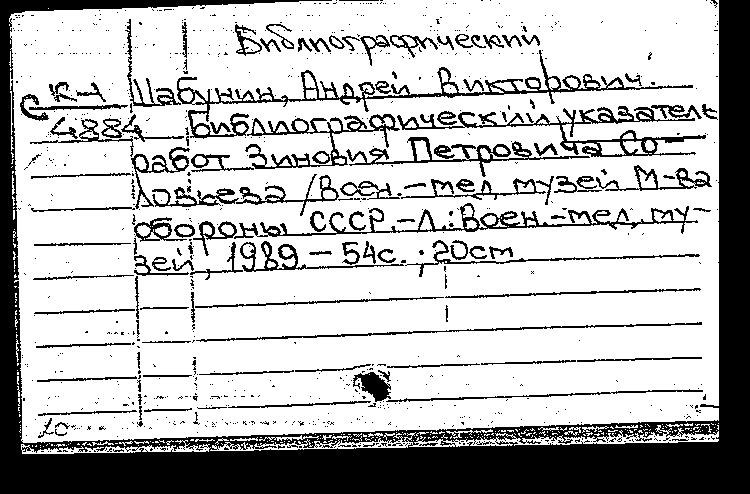 Библиографический
К-1 Шабунин, Андрей Викторович.
4884 Библиографический указатель
работ Зиновия Петровича Со-
ловьева / Воен.-мед. музей М-ва
обороны СССР.-Л.: Воен.-мед. му-
зей, 1989.-54с.; 20cm.
20